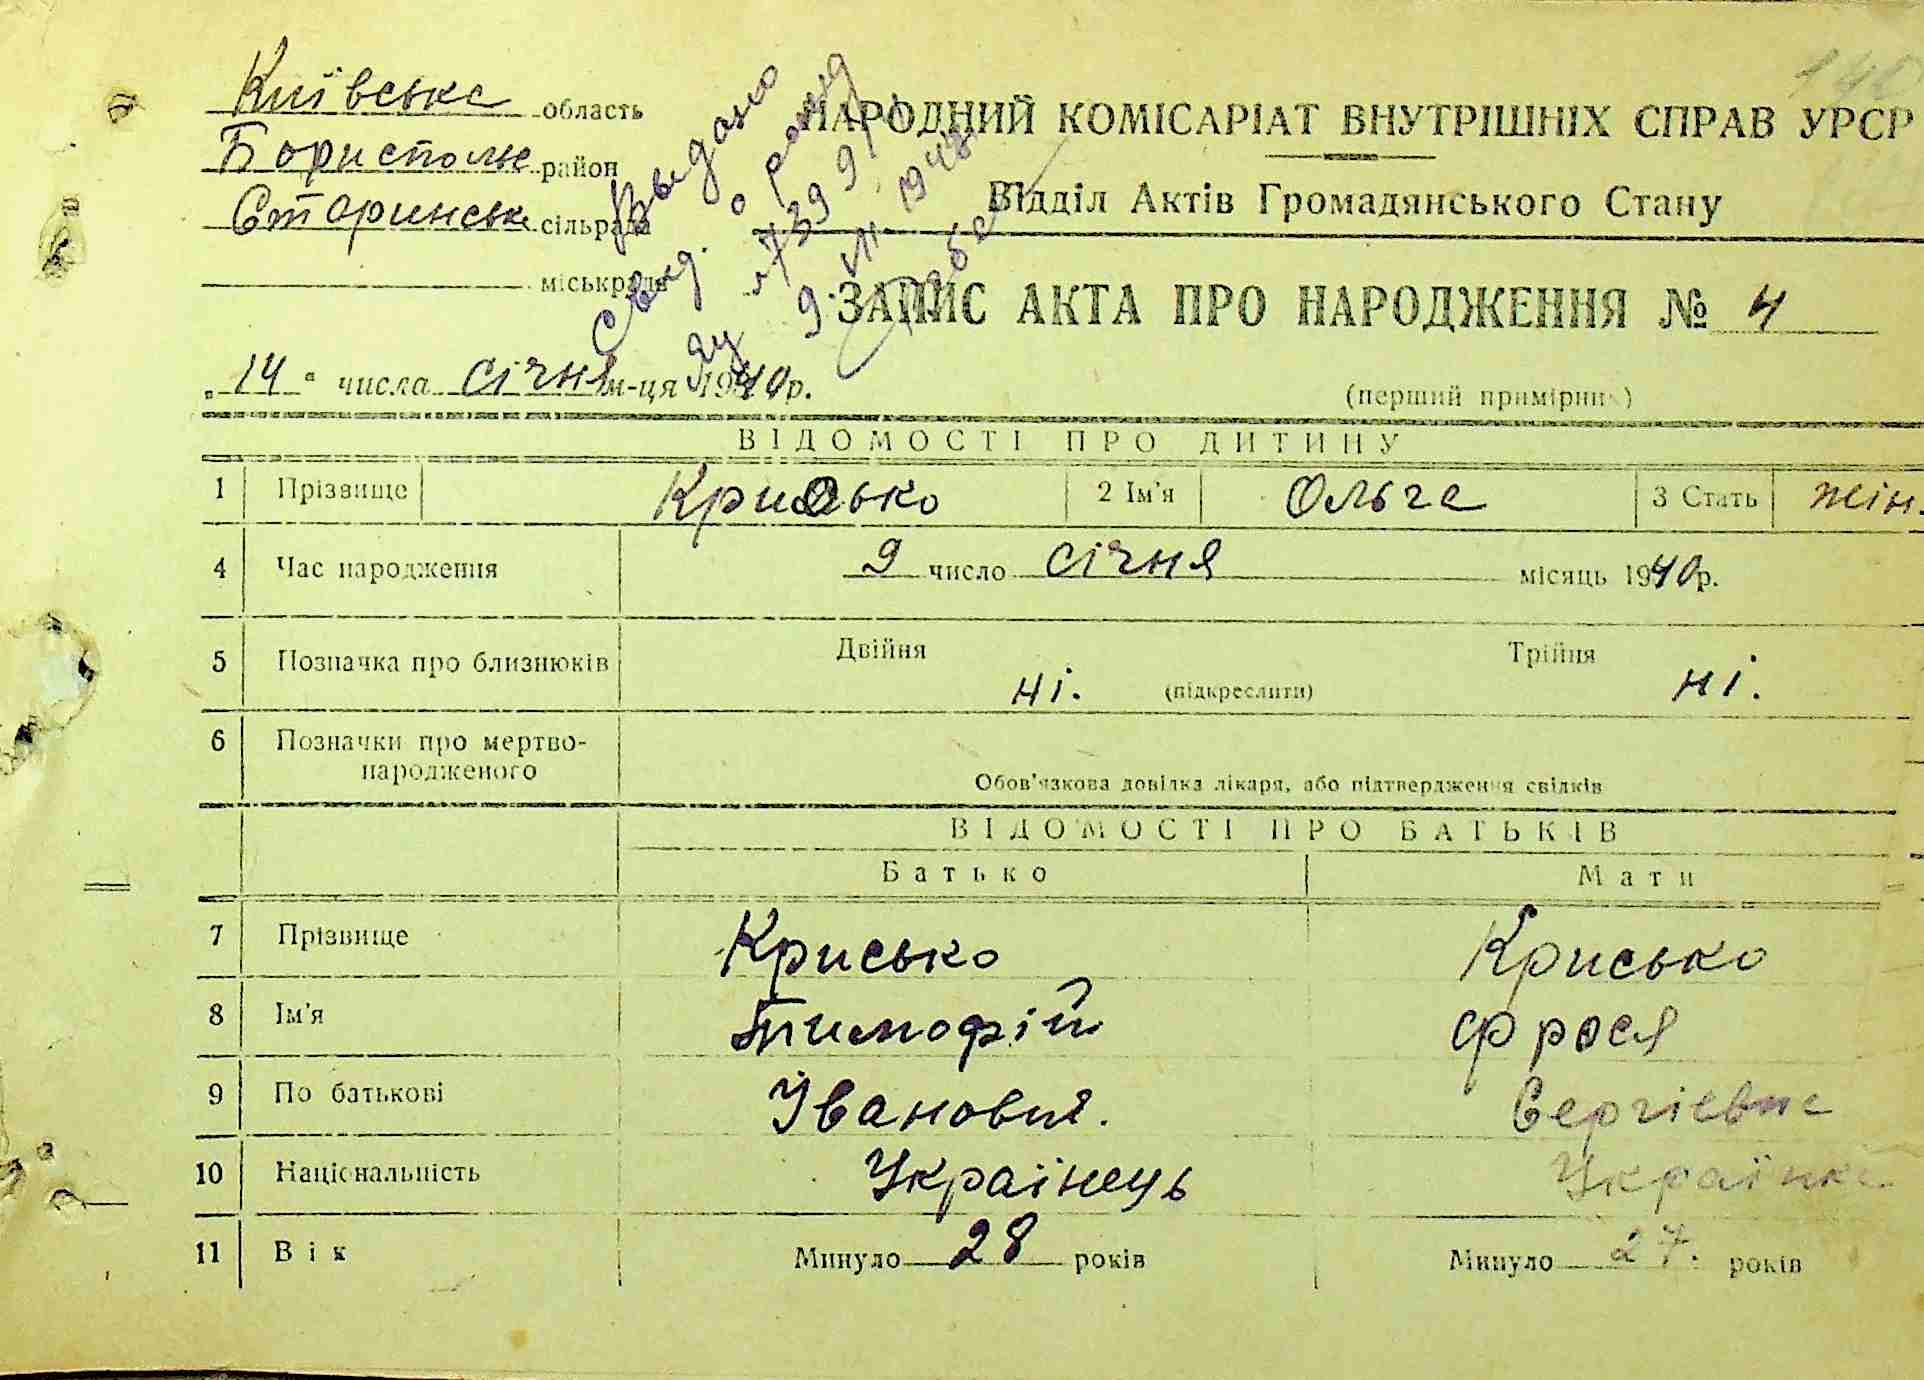 140
Київська область
НАРОДНИЙ КОМІСАРІАТ ВНУТРІШНІХ СПРАВ УРСР
Бориспольс район
Старинськ сільрада
Відділ Актів Громадянського Стану
міськрада
Выдано
Свид. о рожд
9. VII 1948
ЗАПИС АКТА ПРО НАРОДЖЕННЯ № 4
„14" числа січня м-ця 1940р.
(перший примірник)
ВІДОМОСТІ ПРО ДИТИНУ
1 Прізвище Крисько 2 Ім'я Ольга 3 Стать жін.
4 Час народження 9 число січня місяць 1940р.
5 Позначка про близнюків Двійня ні. (підкреслити) Трійня ні.
6 Позначки про мертво-
народженого
Обов'язкова довідка лікаря, або підтвердження свідків
ВІДОМОСТІ ПРО БАТЬКІВ
Батько Мати
7 Прізвище Крисько Крисько
8 Ім'я Тимофій Фрося
9 По батькові Іванович. Сергієвна
10 Національність Українець Українка
11 Вік Минуло 28 років Минуло 27. років